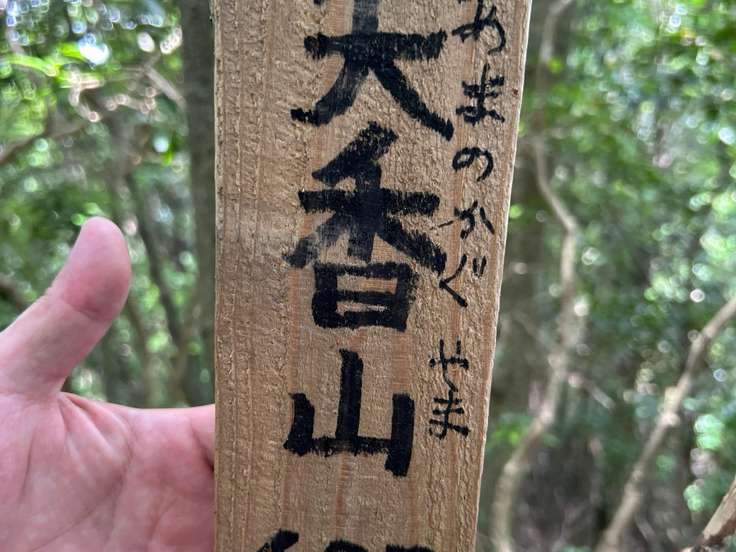 天香山
あまのかぐやま